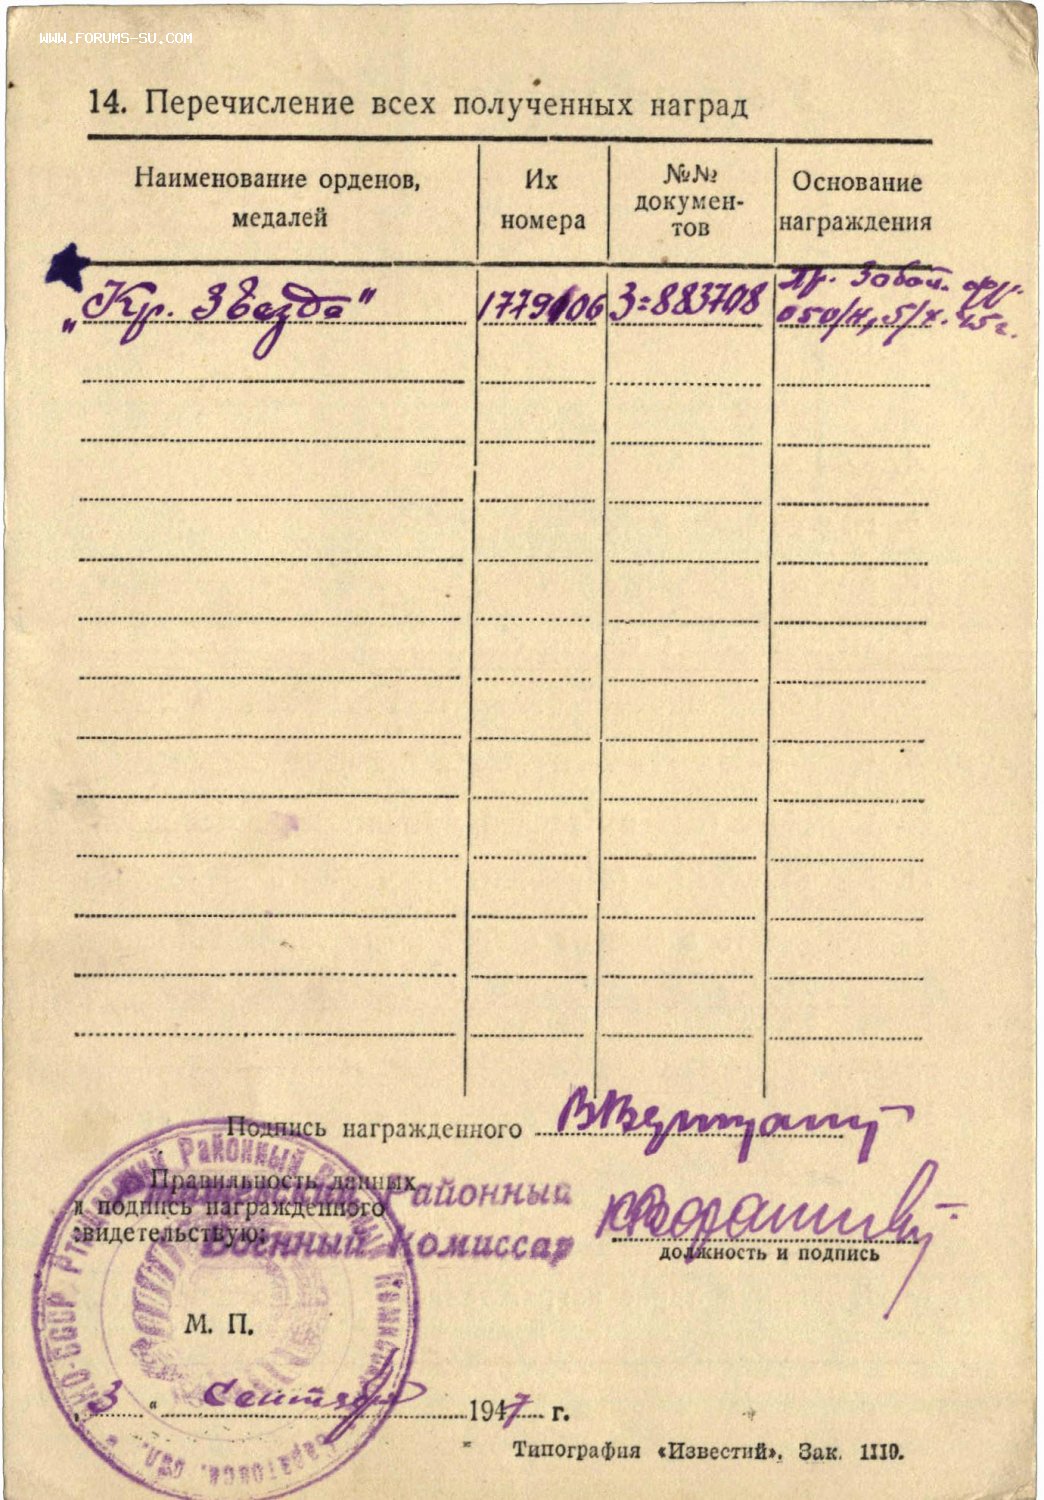 WWW.FORUMS-SU.COM
14. Перечисление всех полученных наград
Наименование орденов, медалей
Их номера
№№ докумен-тов
Основание награждения
„Кр. Звезда"
1779106
З=883708
Пр. Забай. фр.
050/н, 5/х. 45 г.
Подпись награжденного
Правильность данных
и подпись награжденного
свидетельствую:
Ртищевский Районный
Военный Комиссар
должность и подпись
М. П.
„ 3 " Сентября 1947 г.
Типография «Известий». Зак. 1110.